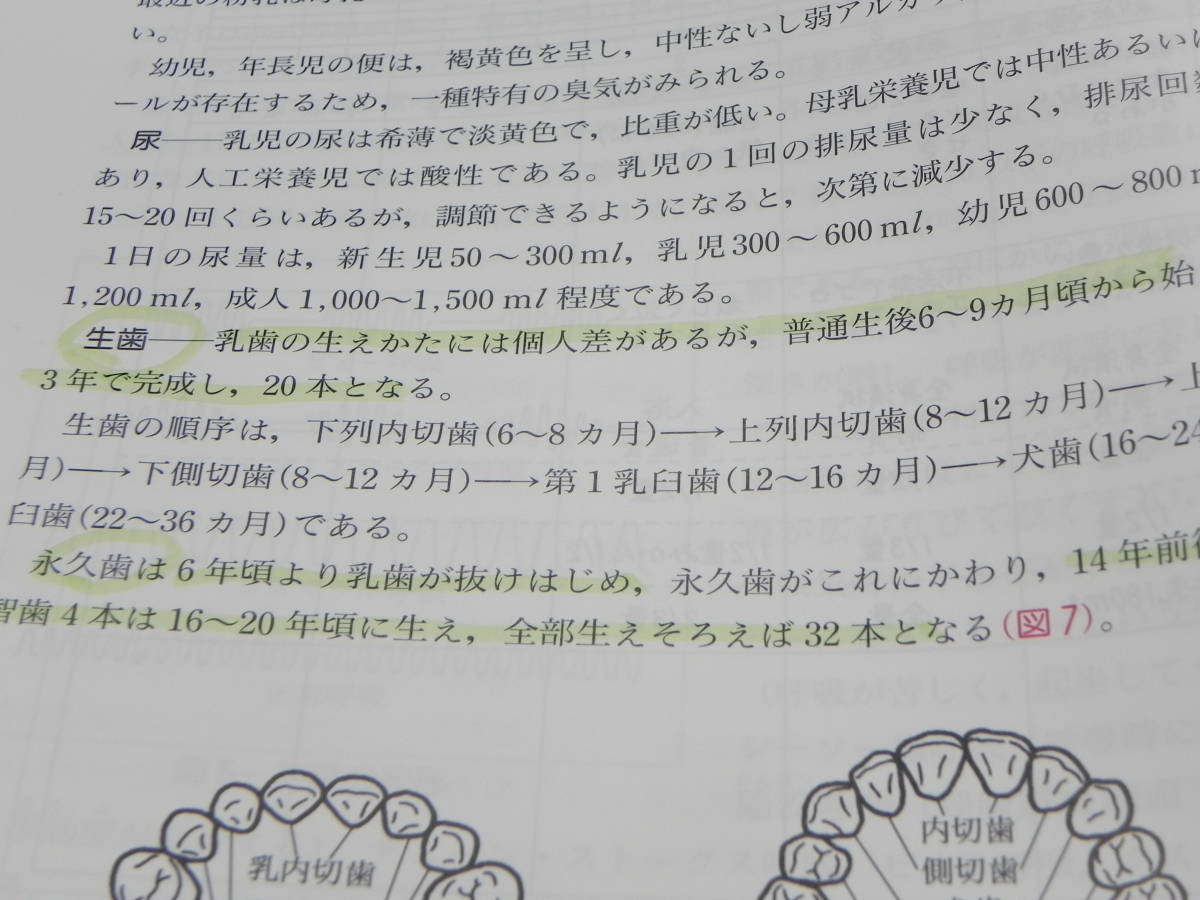 い。
幼児，年長児の便は，褐黄色を呈し，中性ないし弱アルカ
ールが存在するため，一種特有の臭気がみられる。
尿――乳児の尿は希薄で淡黄色で，比重が低い。母乳栄養児では中性あるいは
あり，人工栄養児では酸性である。乳児の1回の排尿量は少なく，排尿回数
15～20回くらいあるが，調節できるようになると，次第に減少する。
1日の尿量は，新生児50～300ml，乳児300～600ml，幼児600～800
1,200ml，成人1,000～1,500ml程度である。
生歯――乳歯の生えかたには個人差があるが，普通生後6～9カ月頃から始
3年で完成し，20本となる。
生歯の順序は，下列内切歯(6～8カ月)―→上列内切歯(8～12カ月)―→上
月)―→下側切歯(8～12カ月)―→第1乳臼歯(12～16カ月)―→犬歯(16～24
臼歯(22～36カ月)である。
永久歯は6年頃より乳歯が抜けはじめ，永久歯がこれにかわり，14年前後
智歯4本は16～20年頃に生え，全部生えそろえば32本となる(図7)。
乳内切歯
内切歯
側切歯